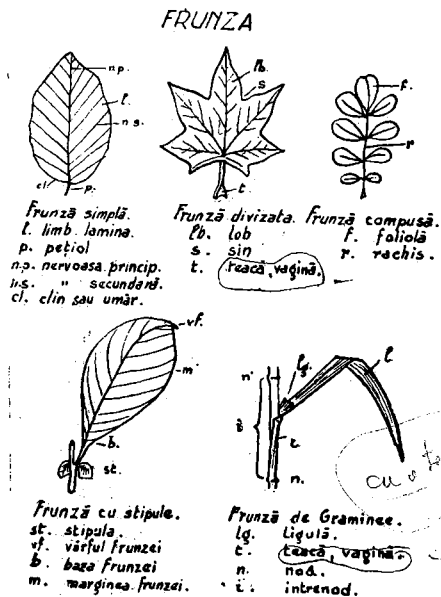 FRUNZA
n.p.
l.
n.s.
cl.
p.
lb.
s
t.
f.
r
Frunză simplă.
l. limb lamina.
p. pețiol
n.p. nervoasa princip.
n.s. " secundară.
cl. clin sau umăr.
Frunză divizata.
lb. lob
s. sin
t. teacă, vagină.
Frunză compusă.
f. foliolă
r. rachis.
vf.
m
b.
st.
n
lg.
l
i
t.
n.
cu o te
Frunză cu stipule.
st. stipula.
vf. vârful frunzei
b. baza frunzei
m. marginea frunzei.
Frunză de Graminee.
lg. Ligulă.
t. teacă, vagină.
n. nod.
i. intrenod.